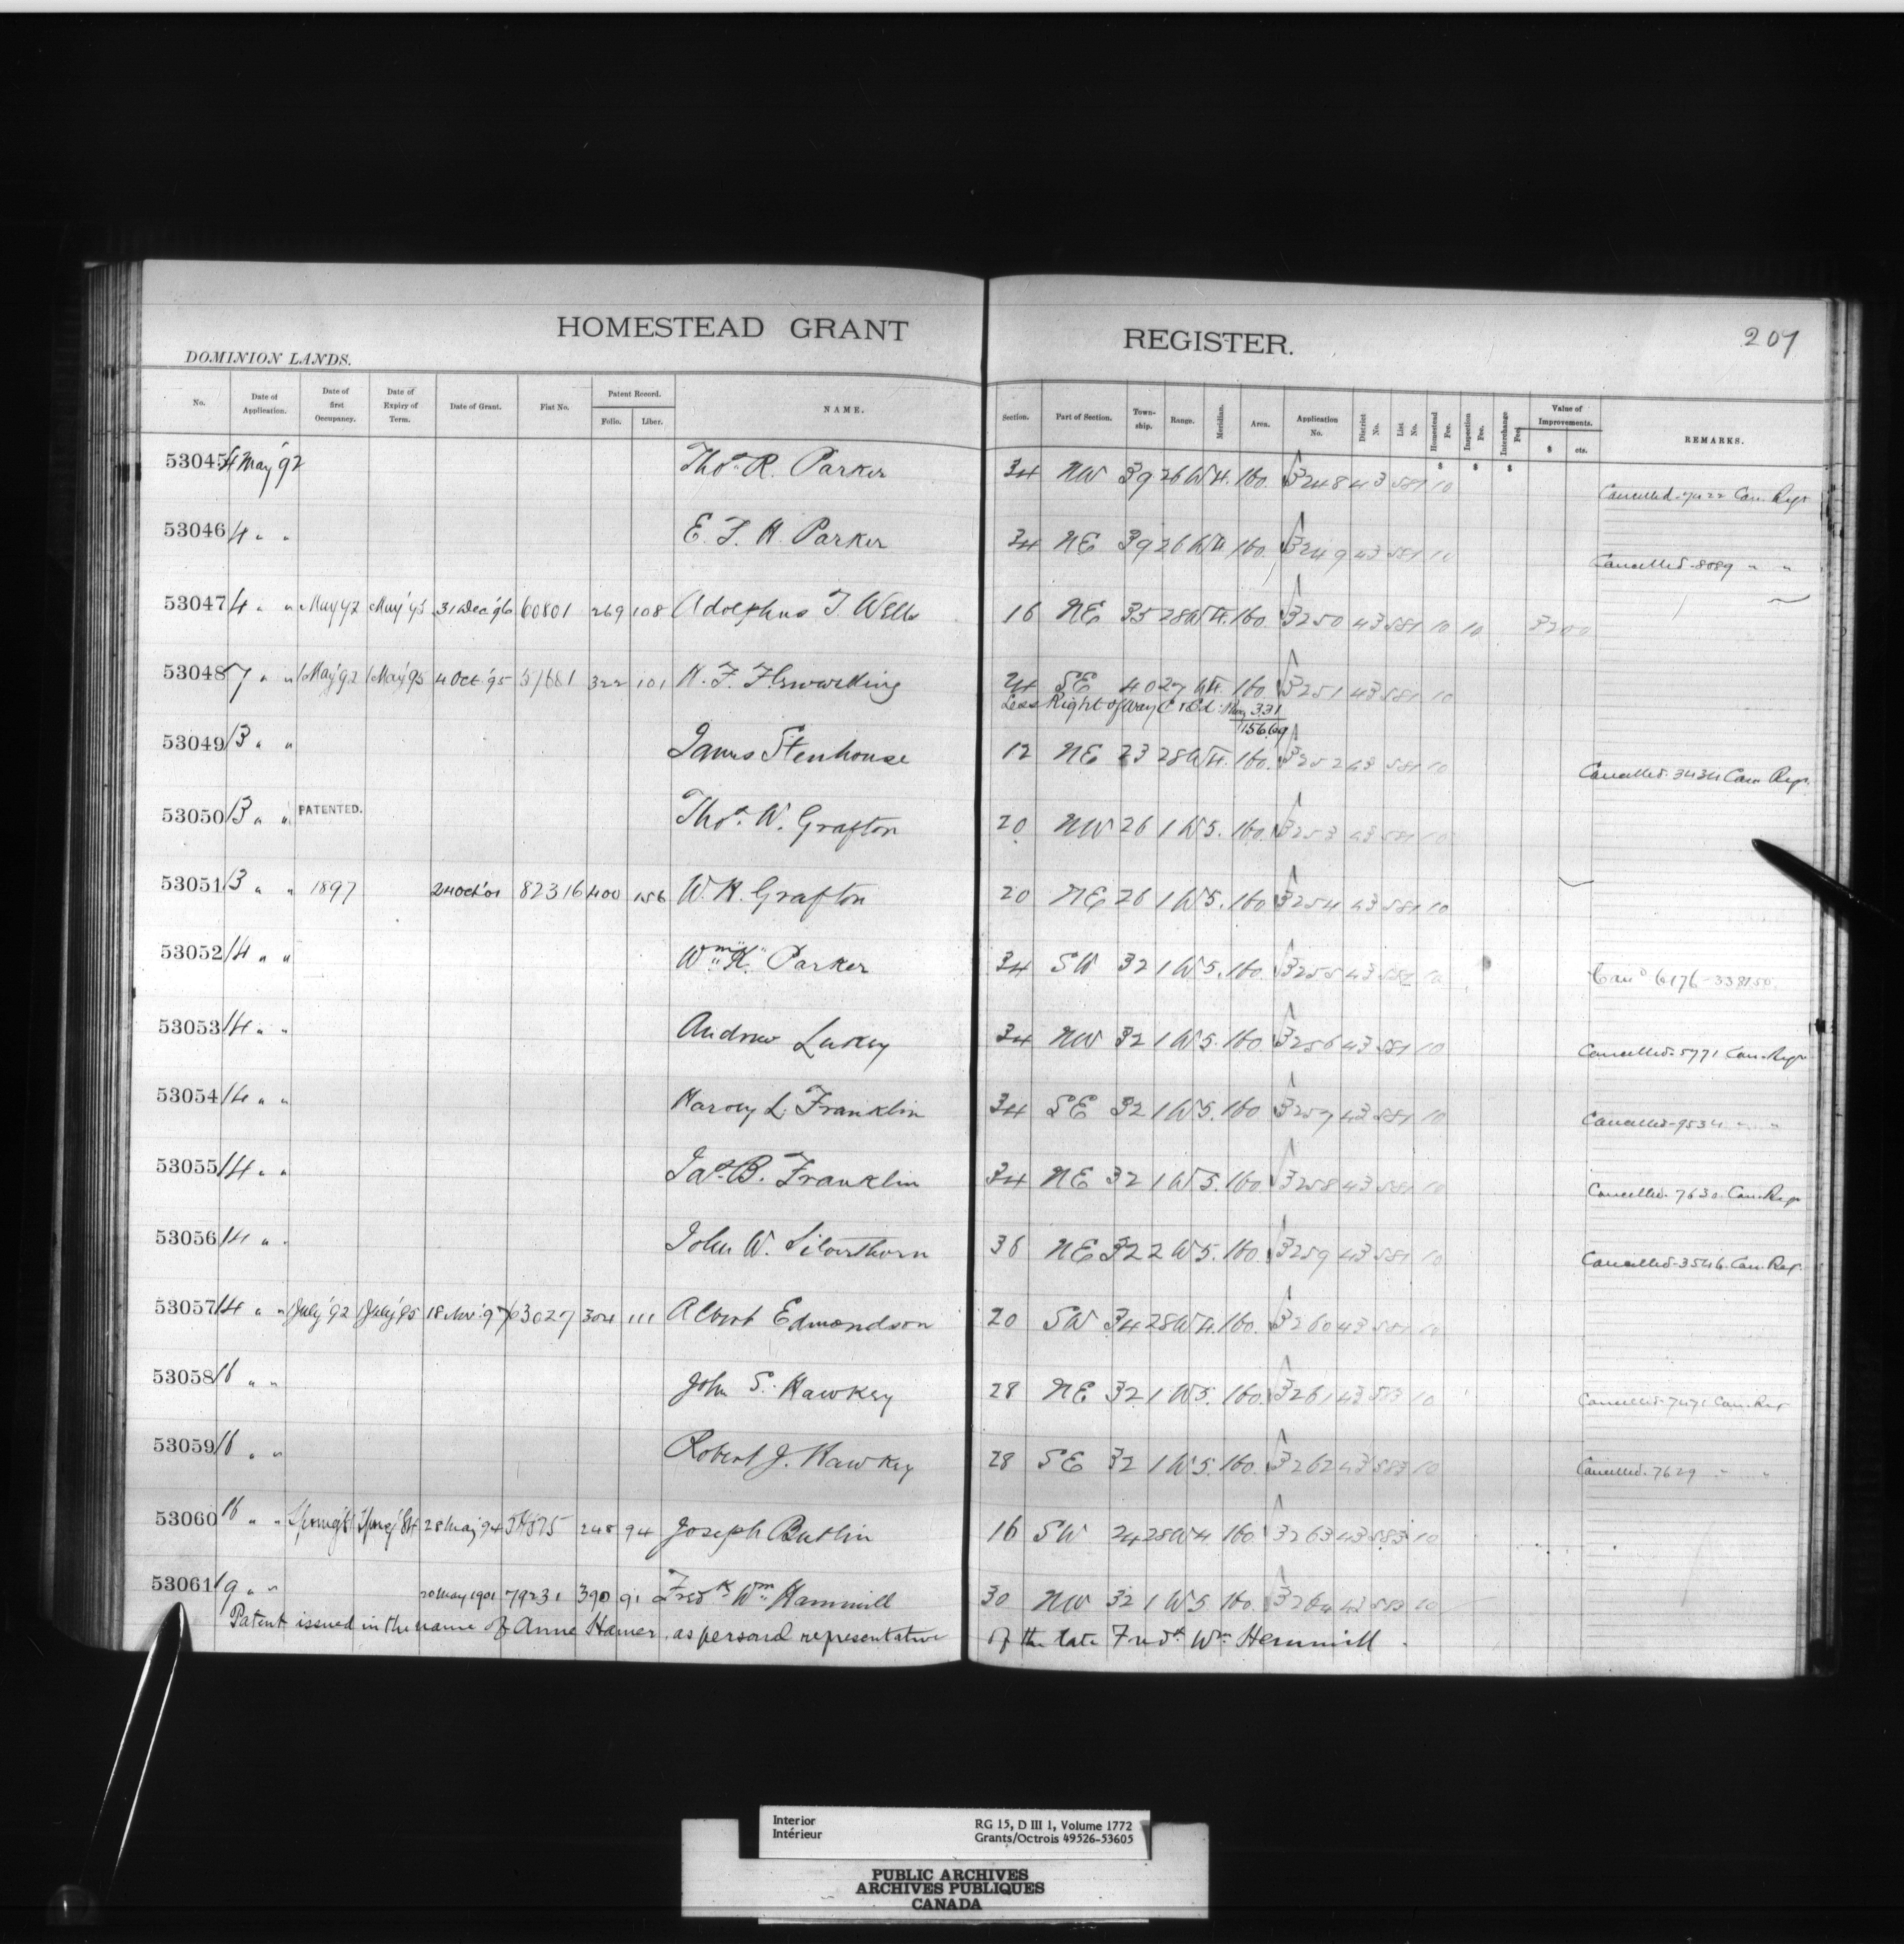 HOMESTEAD GRANT REGISTER. 207
DOMINION LANDS.
No. Date of Application. Date of first Occupancy. Date of Expiry of Term. Date of Grant. Fiat No. Patent Record. Folio. Liber. NAME. Section. Part of Section. Township. Range. Meridian. Area. Application No. District No. List No. Homestead Fee. Inspection Fee. Interchange Fee. Value of Improvements. $ cts. REMARKS.
53045 4 May '92 Thos. R. Parker 34 NW 39 26 W4. 160. 3248 43 581 10 Cancelled-7422 Can. Regr
53046 4 " " E. F. H. Parker 34 NE 39 26 W4. 160. 3249 43 581 10 Cancelled-8089 " "
53047 4 " " May 92 May '95 31 Dec '96 60801 269 108 Adolphus T. Wells 16 NE 35 28 W4. 160. 3250 43 581 10 10 3200
53048 7 " " 1 May '92 1 May '95 4 Oct. '95 57681 322 101 24 SE 40 27 W4. 160. 3251 43 581 10
Less Right of Way C & Ed. Rly 3.31
156.69
53049 13 " " James Stenhouse 12 NE 23 28 W4. 160. 3252 43 581 10 Cancelled. 3434 Can. Regr.
53050 13 " " PATENTED. Thos. W. Grafton 20 NW 26 1 W5. 160. 3253 43 581 10
53051 13 " " 1897 24 Oct '01 82316 400 156 W. H. Grafton 20 NE 26 1 W5. 160 3254 43 581 10
53052 14 " " Wm. H. Parker 34 SW 32 1 W5. 160. 3255 43 581 10 Cand 6176-338150.
53053 14 " " Andrew Lukey 34 NW 32 1 W5. 160. 3256 43 581 10 Cancelled-5771 Can. Regr
53054 14 " " Harvey L. Franklin 34 SE 32 1 W5. 160 3257 43 581 10 Cancelled-9534 " "
53055 14 " " Jas. B. Franklin 34 NE 32 1 W5. 160. 3258 43 581 10 Cancelled. 7630. Can. Regr
53056 14 " " John W. Silverthorn 36 NE 32 2 W5. 160. 3259 43 581 10 Cancelled-3546. Can. Reg.
53057 14 " " 1 July '92 1 July '95 18 Nov. '97 63027 304 111 Albert Edmondson 20 SW 34 28 W4. 160. 3260 43 581 10
53058 16 " " John S. Hawkey 28 NE 32 1 W5. 160. 3261 43 583 10 Cancelled-7471 Can. Reg
53059 16 " " Robert J. Hawkey 28 SE 32 1 W5. 160. 3262 43 583 10 Cancelled. 7629 " "
53060 16 " " 28 May '94 248 94 Joseph Butlin 16 SW 24 28 W4. 160. 3263 43 583 10
53061 19 " " 20 May 1901 79231 390 91 Fredk Wm. Hammill 30 NW 32 1 W5 160. 3264 43 583 10
Patent issued in the name of Anne Hamer, as personal representative of the late Fredk Wm. Hemmill.
Interior
Intérieur
RG 15, D III 1, Volume 1772
Grants/Octrois 49526-53605
PUBLIC ARCHIVES
ARCHIVES PUBLIQUES
CANADA